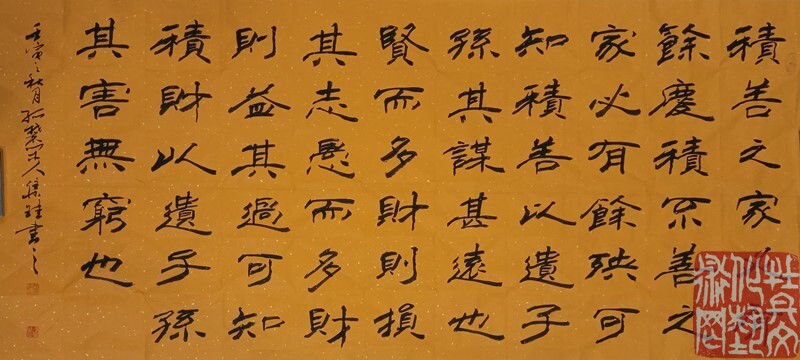 積善之家
餘慶積不善之
家必有餘殃可
知積善以遺子
孫其謀甚遠也
賢而多財則損
其志愚而多財
則益其過可知
積財以遺子孫
其害無窮也
壬寅之秋月